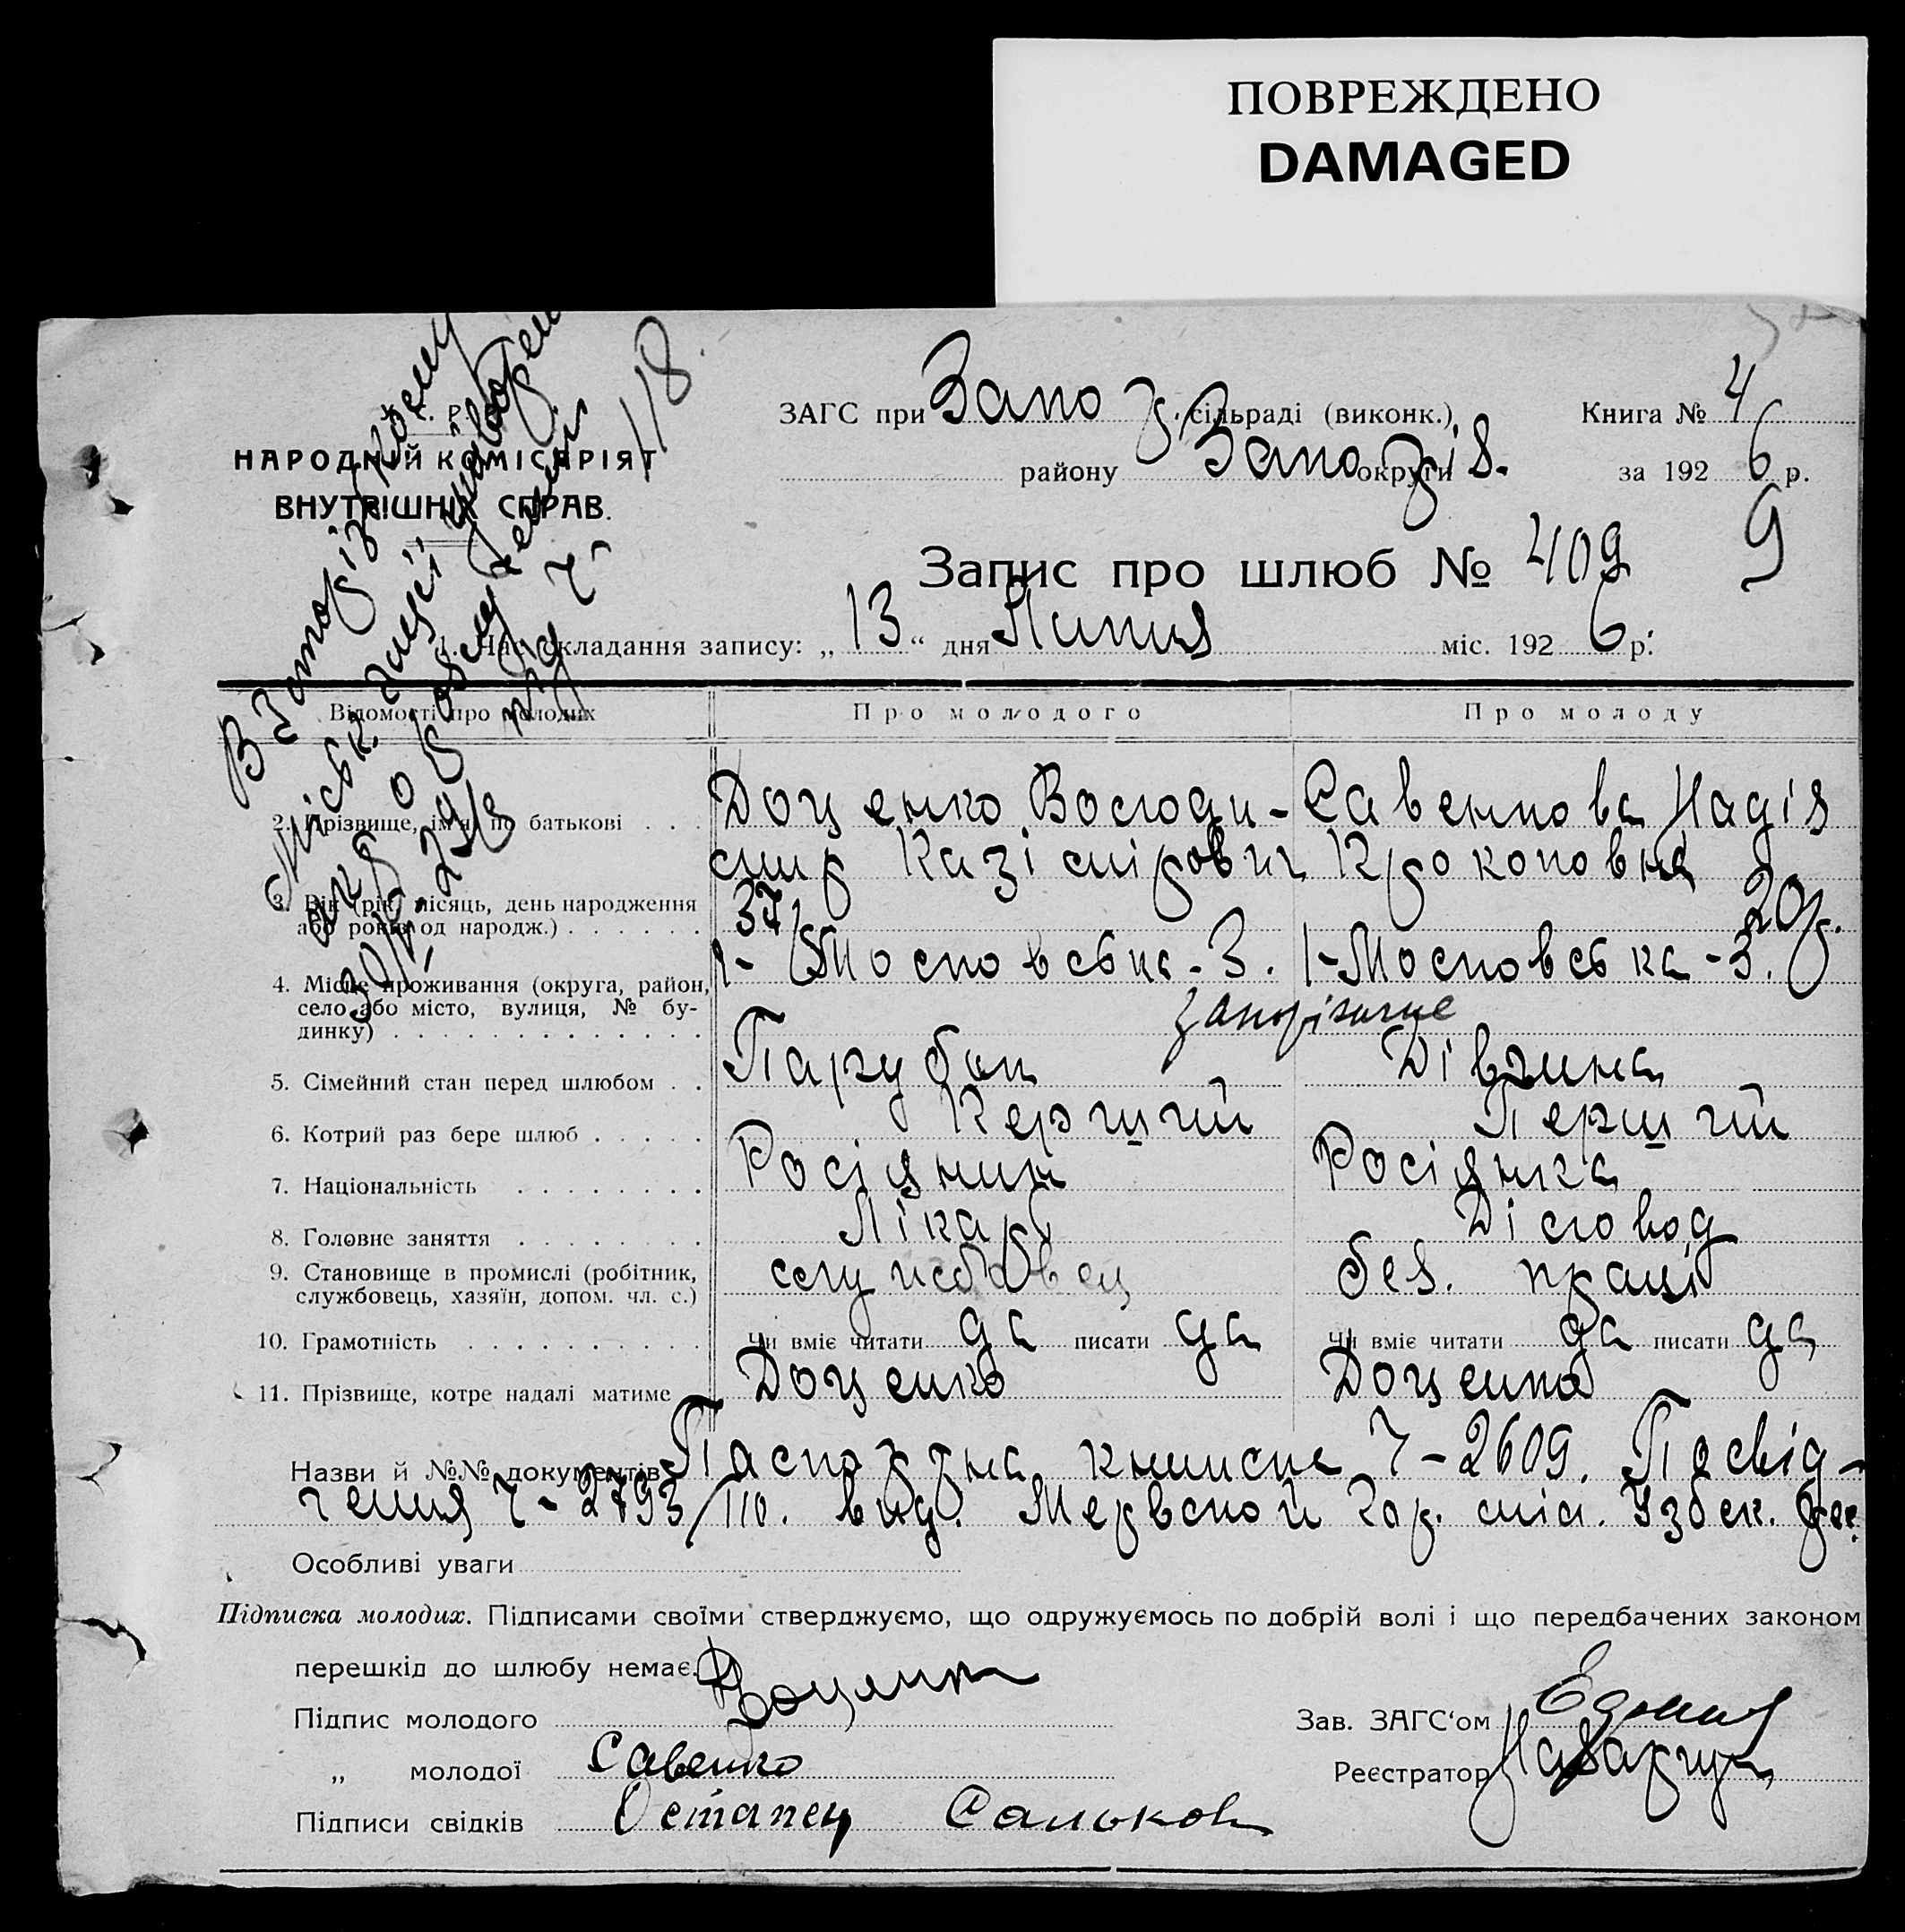 ПОВРЕЖДЕНО
DAMAGED
118
ЗАГС при Запоз. сільраді (виконк.) Книга № 4
НАРОДНИЙ КОМІСАРІЯТ
району Запоріз. округи за 1926 р.
ВНУТРІШНІХ СПРАВ.
9
Запис про шлюб № 409
1. Час складання запису: „13“ дня Липня міс. 1926 р.
Відомості про молодих Про молодого Про молоду
2. Прізвище, ім'я, по батькові Доценко Володи- Савенкова Надія
мир Казімірович Прокоповна
3. Вік (рік, місяць, день народження 37 20р.
або років од народж.)
4. Місце проживання (округа, район, 1-Московська-3. 1-Московська-3.
село або місто, вулиця, № бу-
динку) Запоріжжє
5. Сімейний стан перед шлюбом Парубок Дівчина
6. Котрий раз бере шлюб Перший Перший
7. Національність Росіянин Росіянка
8. Головне заняття Лікарь Діловод
9. Становище в промислі (робітник, службовець без. праці
службовець, хазяїн, допом. чл. с.)
10. Грамотність Чи вміє читати да писати да Чи вміє читати да писати да
11. Прізвище, котре надалі матиме Доценко Доценко
Назви й №№ документів Паспортна книжка Ч-2609. Посвід-
чення Ч-2793/ вид. Мервской гор. міл. Узбек.
Особливі уваги
Підписка молодих. Підписами своїми стверджуємо, що одружуємось по добрій волі і що передбачених законом
перешкід до шлюбу немає.
Підпис молодого Доценко Зав. ЗАГС‘ом
„ молодої Савенко Реєстратор
Підписи свідків Остапец Сальков